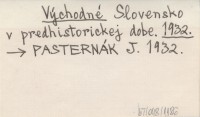 Východné Slovensko
v predhistorickej dobe. 1932.
→ PASTERNÁK J. 1932.